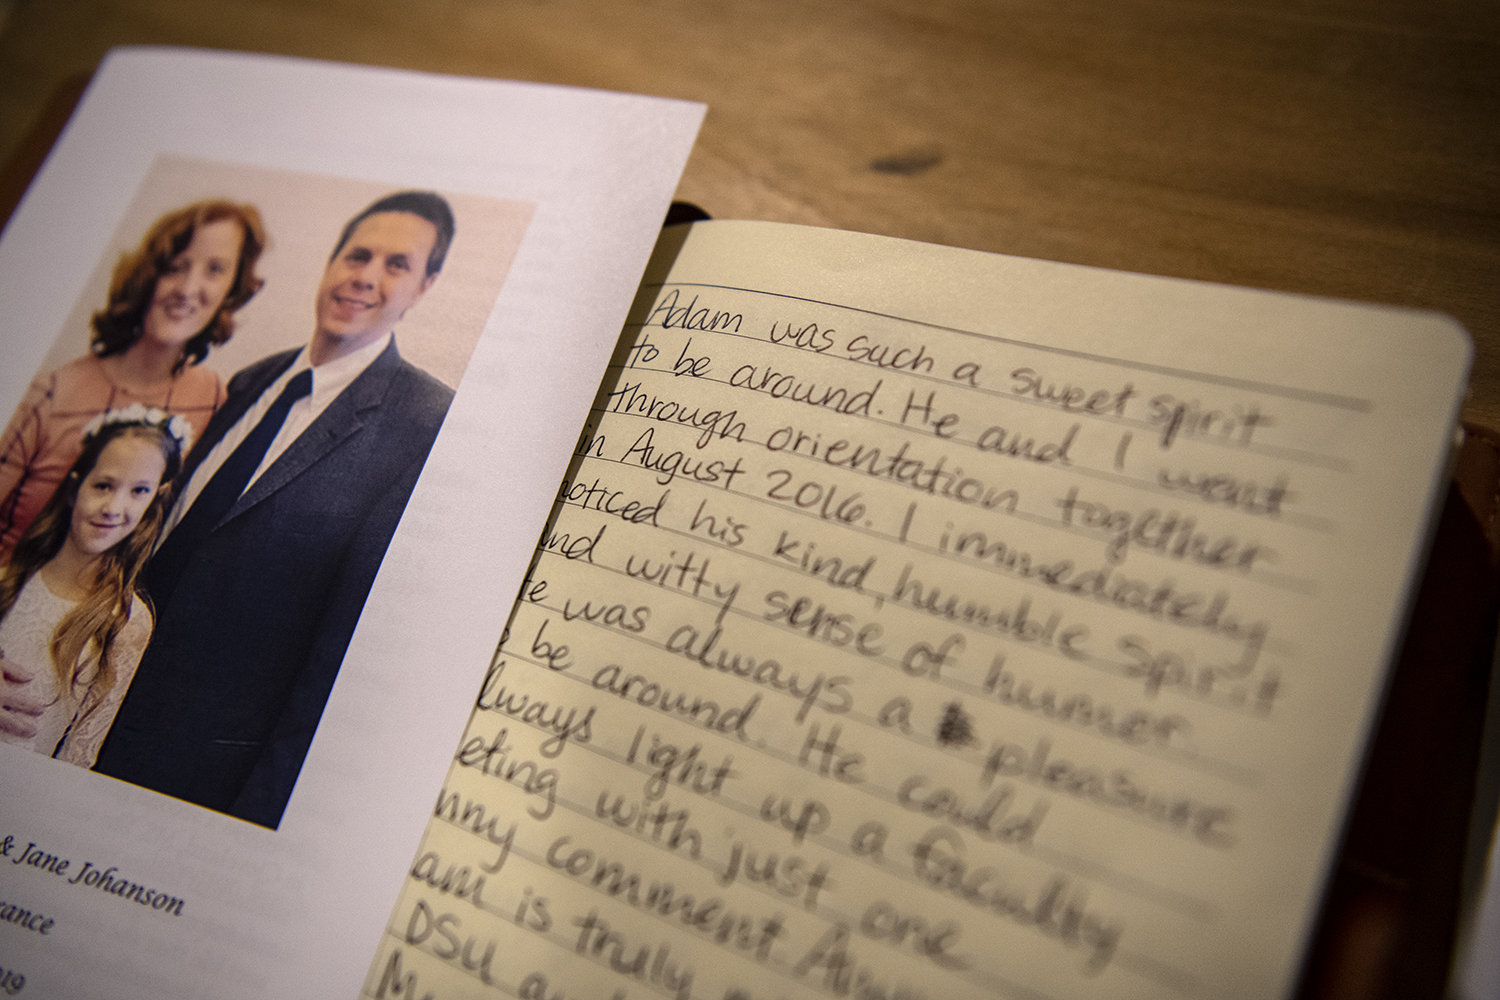 & Jane Johanson
rance
019
Adam was such a sweet spirit
to be around. He and I went
through orientation together
in August 2016. I immediately
noticed his kind, humble spirit
and witty sense of humor
te was always a pleasure
e be around. He could
lways light up a faculty
eting with just one
nny comment. Adam
am is truly
DSU